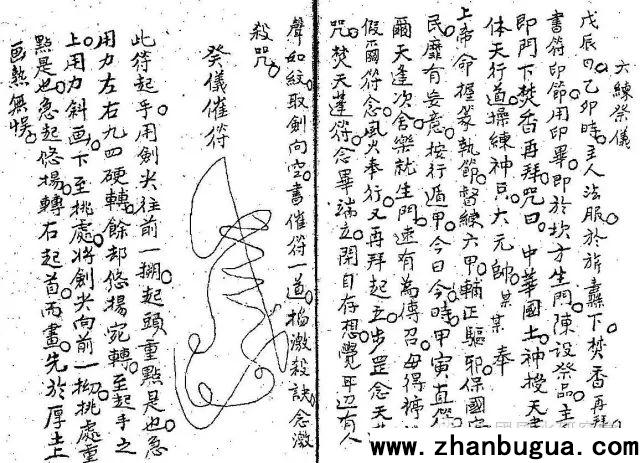 六練祭儀
戊辰日乙卯時主人法服於旂纛下焚香再拜
書符印節用印畢即於坎方生門陳設祭品主
即門下焚香再拜咒曰中華國土神授天
体天行道操練神只大元帥某某奉
上帝命握篆執節督練六甲輔正驅邪保國
民靡有妄意按行遁甲今日今時甲寅直符
爾天逢次舍樂就生門速有為傳召毋得
假爾符念風火奉行又再拜起五步罡念天
咒焚天蓬符念畢端立閉目存想覺耳边有人
聲如紋取劍向空書催符一道掐激殺訣念激
殺咒
癸儀催符
此符起手用劍尖往前一掤起頭重點是也急
用力左右九四硬轉餘却悠揚宛轉至起手之
上用力斜画下至挑處將劍尖向前一拗挑處重
點是也急起悠揚轉右起首而畫先於厚土
画熟無悮
www.zhanbugua.com